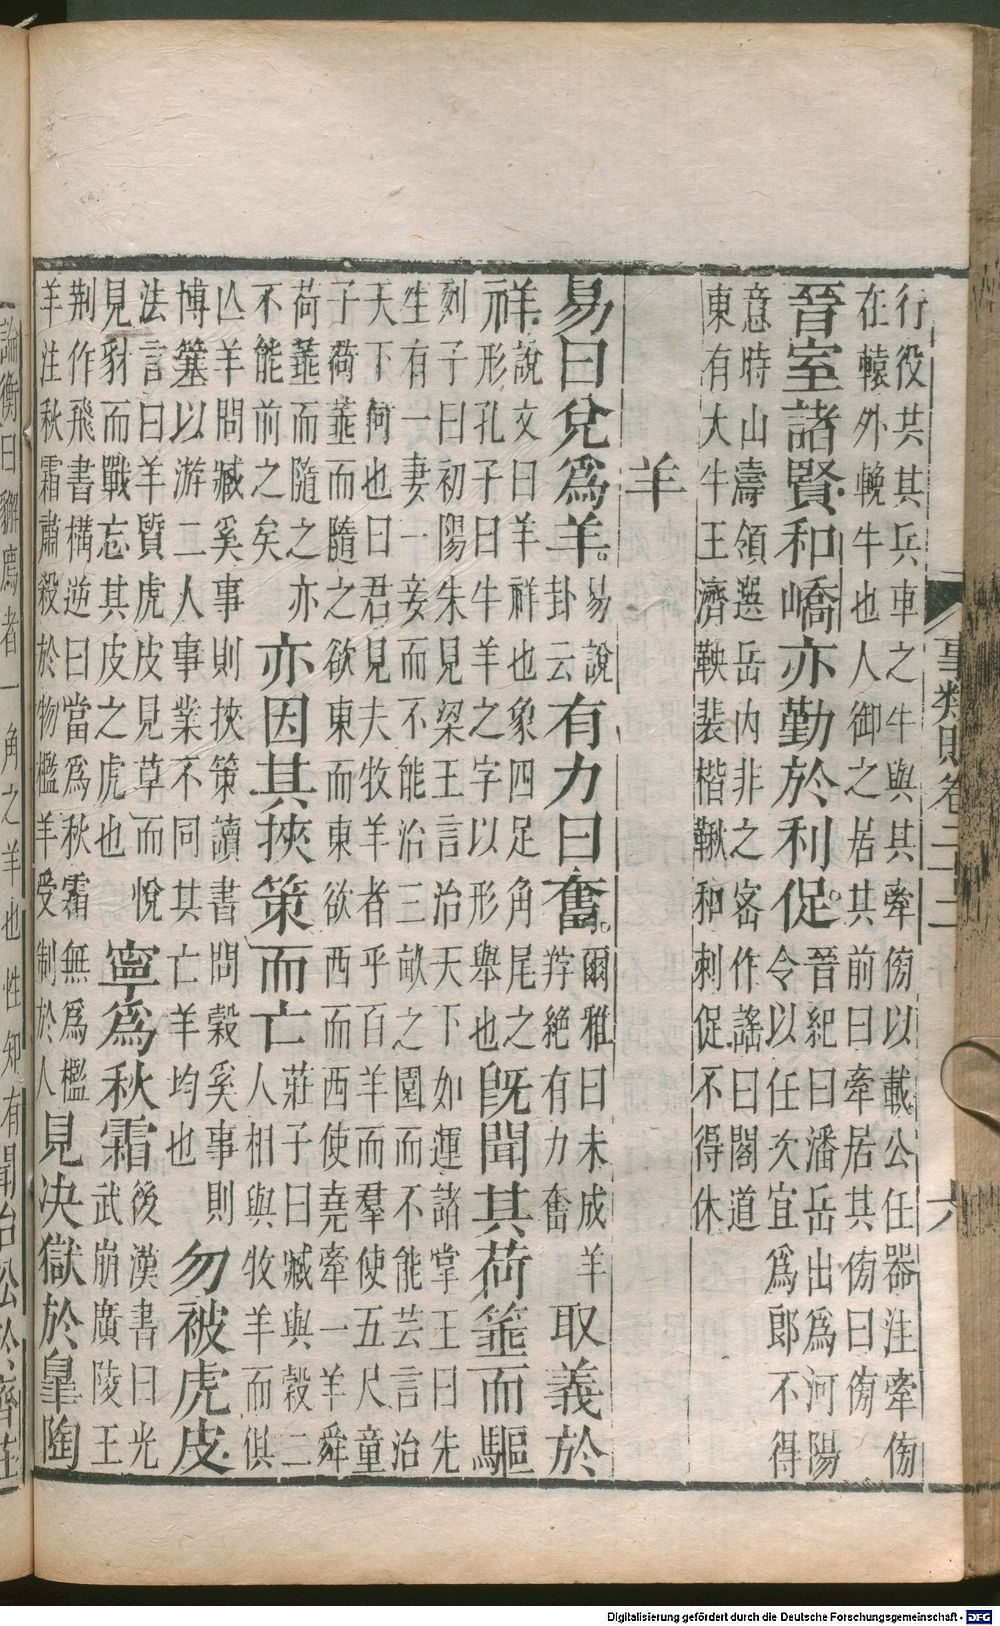 行役共其兵車之牛與其牽傍以載公任器注牽傍
在轅外輓牛也人御之居其前曰牽居其傍曰傍
晉室諸賢和嶠亦勤於利促。晉紀曰潘岳出爲河陽令以任次宜爲郎不得
意時山濤領選岳内非之宻作謠曰閣道
東有大牛王濟鞅裴楷鞦和刺促不得休
羊
易曰兌爲羊。易說卦云有力曰奮。爾雅曰未成羊羜絶有力奮取義於
祥。說文曰羊祥也象四足角尾之形孔子曰牛羊之字以形舉也旣聞其荷箠而驅
列子曰初陽朱見梁王言治天下如運諸掌王曰先
生有一妻一妾而不能治三畝之園而不能芸言治
天下何也曰君見夫牧羊者乎百羊而羣使五尺童
子荷箠而隨之欲東而東欲西而西使堯牽一羊舜
荷箠而隨之亦不能前之矣亦因其挾策而亡莊子曰臧與榖二人相與牧羊而俱
亾羊問臧奚事則挾策讀書問榖奚事則博簺以游二人事業不同其亡羊均也勿被虎皮
法言曰羊質虎皮見草而悅見豺而戰忘其皮之虎也寧爲秋霜後漢書曰光武崩廣陵王
荆作飛書構逆曰當爲秋霜無爲檻羊注秋霜肅殺於物檻羊受制於人見决獄於臯陶
事類賦卷二十二
六
論衡曰獬廌者一角之羊也性知有
Digitalisierung gefördert durch die Deutsche Forschungsgemeinschaft - DFG